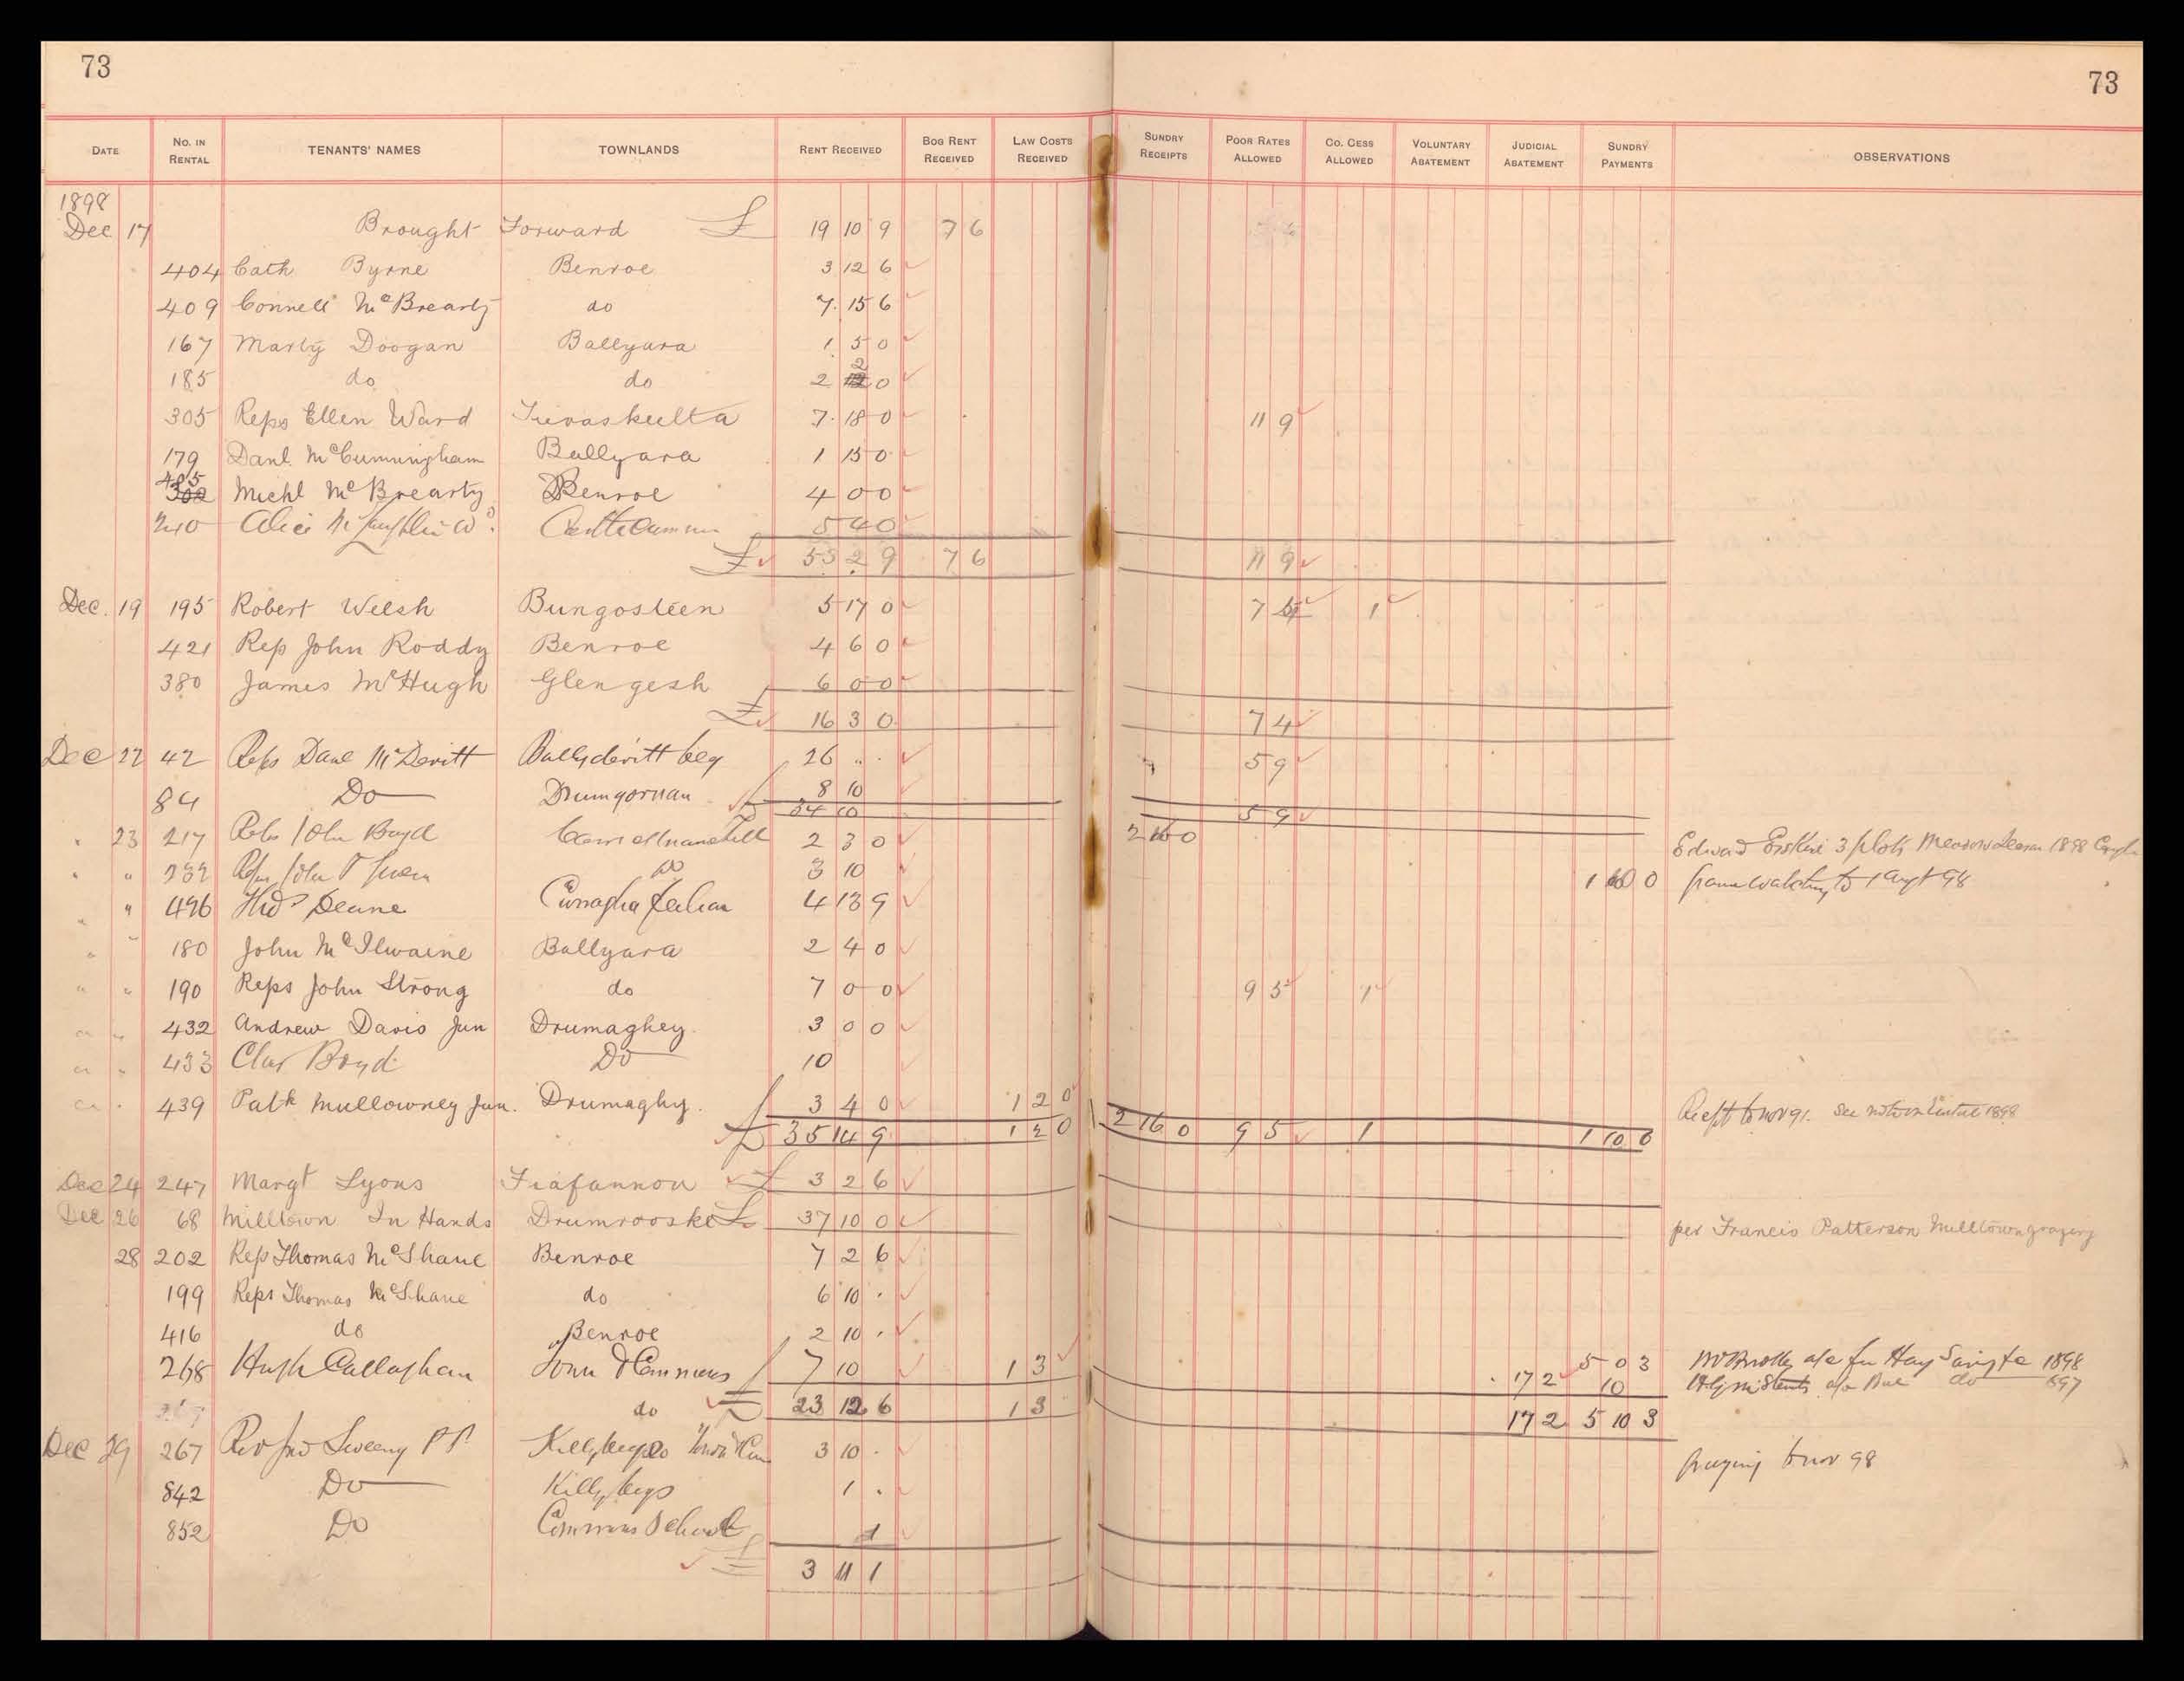 73
73
DATE No. IN RENTAL TENANTS' NAMES TOWNLANDS RENT RECEIVED BOG RENT RECEIVED LAW COSTS RECEIVED SUNDRY RECEIPTS POOR RATES ALLOWED CO. CESS ALLOWED VOLUNTARY ABATEMENT JUDICIAL ABATEMENT SUNDRY PAYMENTS OBSERVATIONS
1898
Dec 17 Brought Forward £ 19 10 9 7 6
404 Cath Byrne Benroe 3 12 6
409 Connell McBrearty do 7 15 6
167 Marty Doogan Ballyara 1 5 0
185 do do 2 2 0
305 Reps Ellen Ward 7 18 0 11 9
179 Danl McCunningham Ballyara 1 15 0
405 Michl McBrearty Benroe 4 0 0
210 Alice McLaughlin 5 4 0
£ 53 2 9 7 6 11 9
Dec. 19 195 Robert Welsh Bungosteen 5 17 0 7 4 1
421 Rep John Roddy Benroe 4 6 0
380 James McHugh Glengesh 6 0 0
£ 16 3 0 7 4
Dec 22 42 Reps Danl McDevitt Ballydevitt beg 26 " . 5 9
84 Do Drumgornan 8 10
£ 34 10 5 9
" 23 217 Reps John Boyd 2 3 0 2 16 0 Edward Erskine 3 plots Meadow 1898
" " 232 John Do 3 10 1 10 0 to 1 Augt 98
" 496 Thos Deane 4 13 9
" " 180 John McIlwaine Ballyara 2 4 0
" " 190 Reps John Strong do 7 0 0 9 5 1
" " 432 Andrew Davis Jun Drumaghey 3 0 0
" " 433 Chas Boyd Do 10
" " 439 Patk Mullowney Jun. Drumaghy. 3 4 0 1 2 0 Rect to Nov 91. See note in Rental 1898
£ 35 14 9 1 2 0 2 16 0 9 5 1 1 10 0
Dec 24 247 Margt Lyons Fiafannon £ 3 2 6
Dec 26 68 Milltown In Hands Drumrooske £ 37 10 0 per Francis Patterson Milltown grazing
28 202 Rep Thomas McShane Benroe 7 2 6
199 Reps Thomas McShane do 6 10 .
416 do Benroe 2 10 .
268 Hugh Callaghan Town & Commons 7 10 1 3 17 2 5 0 3 a/c for Hay Saving &c 1898
10 a/c do 1897
do £ 23 12 6 1 3 17 2 5 10 3
Dec 29 267 Rev Jno Sweeny P P Killybegs 3 10 . Grazing to Nov 98
842 Do Killybegs 1 .
852 Do Commons School 1
£ 3 11 1